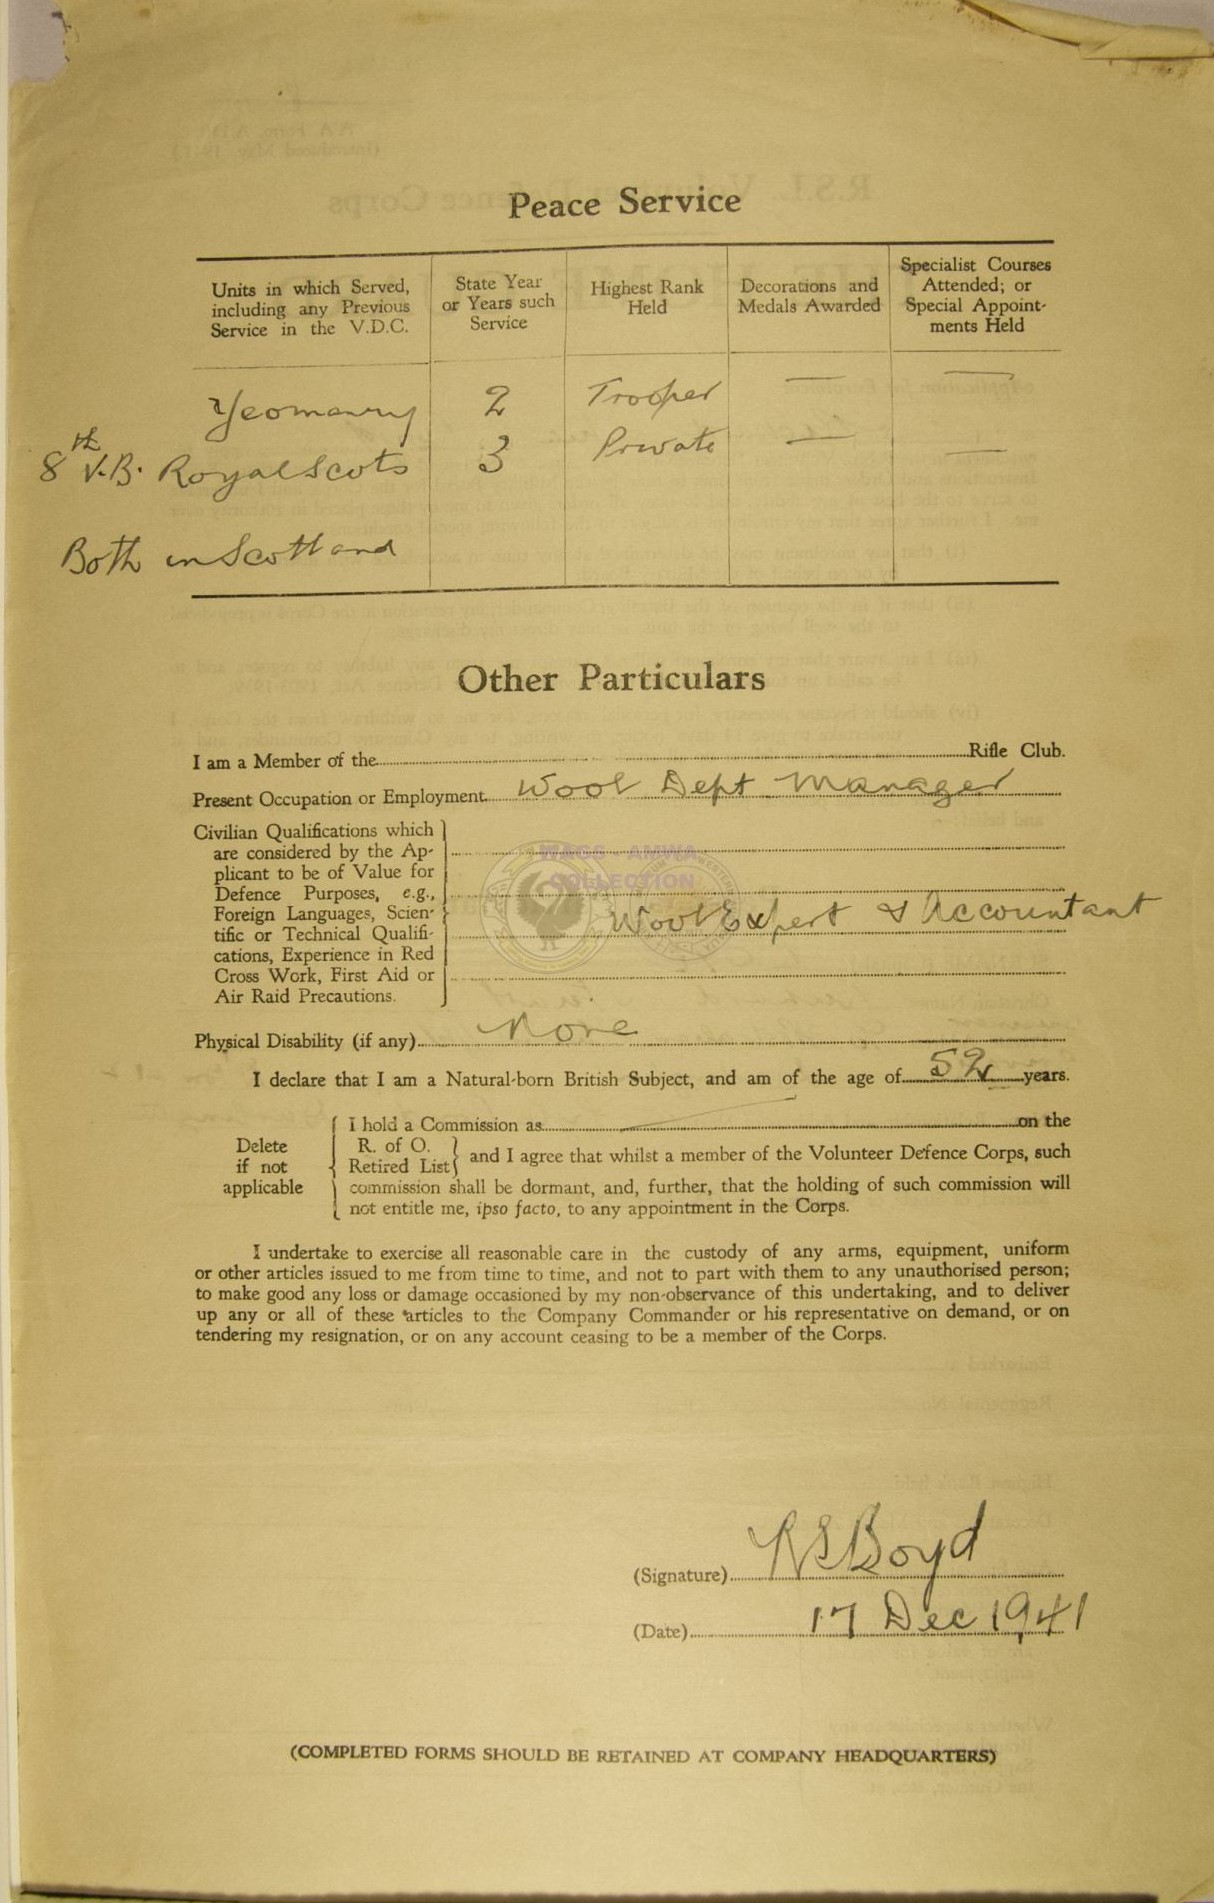 Peace Service
Units in which Served, including any Previous Service in the V.D.C.
State Year or Years such Service
Highest Rank Held
Decorations and Medals Awarded
Specialist Courses Attended; or Special Appoint-ments Held
Yeomanry 2 Trooper — —
8th V.B. Royal Scots 3 Private — —
Both in Scotland
Other Particulars
I am a Member of the Rifle Club.
Present Occupation or Employment Wool Dept Manager
Civilian Qualifications which
are considered by the Ap-
plicant to be of Value for
Defence Purposes, e.g.,
Foreign Languages, Scien- Wool Expert & Accountant
tific or Technical Qualifi-
cations, Experience in Red
Cross Work, First Aid or
Air Raid Precautions.
WAGS - AMWA
COLLECTION
Physical Disability (if any) None
I declare that I am a Natural-born British Subject, and am of the age of 52 years.
Delete
if not
applicable
I hold a Commission as on the
R. of O.
Retired List
and I agree that whilst a member of the Volunteer Defence Corps, such
commission shall be dormant, and, further, that the holding of such commission will
not entitle me, ipso facto, to any appointment in the Corps.
I undertake to exercise all reasonable care in the custody of any arms, equipment, uniform
or other articles issued to me from time to time, and not to part with them to any unauthorised person;
to make good any loss or damage occasioned by my non-observance of this undertaking, and to deliver
up any or all of these articles to the Company Commander or his representative on demand, or on
tendering my resignation, or on any account ceasing to be a member of the Corps.
(Signature) RSBoyd
(Date) 17 Dec 1941
(COMPLETED FORMS SHOULD BE RETAINED AT COMPANY HEADQUARTERS)